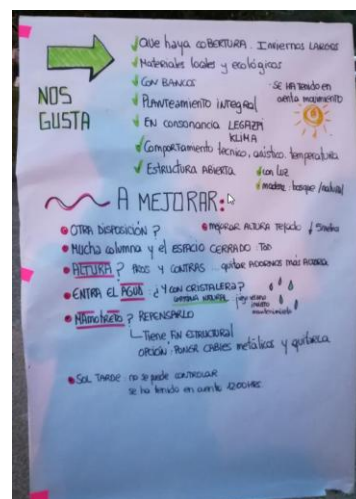 NOS GUSTA
QUE haya COBERTURA. INVIERNOS LARGOS
Materiales locales y ecológicos
CON BANCOS
SE HA TENIDO EN cuenta movimiento
PLANTEAMIENTO integral
EN CONSONANCIA LEGAZPI
KLIMA
Comportamiento técnico, acústico, temperatura
ESTRUCTURA ABIERTA
con LUZ
madera: bosque/natural
A MEJORAR:
OTRA DISPOSICIÓN?
mejorar ALTURA Tejado
Mucha columna y el ESPACIO CERRADO:
ALTURA? PROS Y CONTRAS... quitar ADORNOS más
ENTRA EL AGUA: ¿Y CON CRISTALERA?
mantenimiento
MAMOTRETO? REPENSARLO
Tiene FIN ESTRUCTURAL
OPCIÓN: PONER CABLES metálicos y quitarlo
SOL TARDE no se puede controlar
se ha tenido en cuenta 12:00HRS.